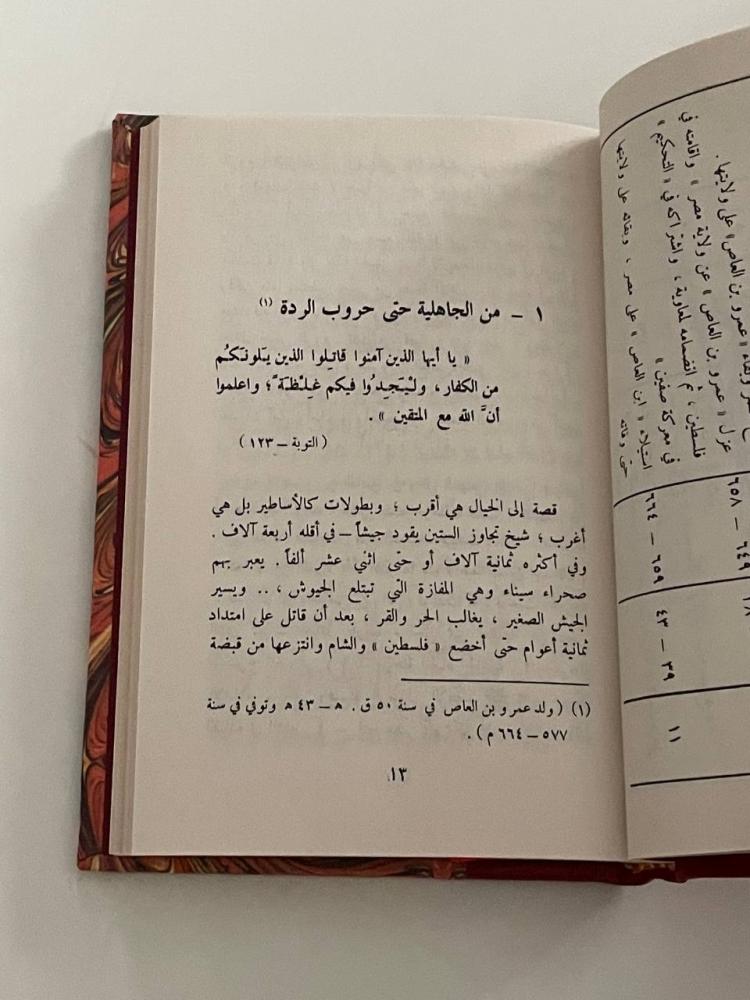 ١ - من الجاهلية حتى حروب الردة (١)
« يا أيها الذين آمنوا قاتِلوا الذين يَلونَكُم
من الكفار ، ولْيَجِدُوا فيكم غِلْظَةً ؛ واعلموا
أنَّ الله مع المتقين » .
( التوبة – ١٢٣ )
قصة إلى الخيال هي أقرب ؛ وبطولات كالأساطير بل هي
أغرب ؛ شيخ تجاوز الستين يقود جيشاً – في أقله أربعة آلاف .
وفي أكثره ثمانية آلاف أو حتى اثني عشر ألفاً . يعبر بهم
صحراء سيناء وهي المفازة التي تبتلع الجيوش ، .. ويسير
الجيش الصغير ، يغالب الحر والقر ، بعد أن قاتل على امتداد
ثمانية أعوام حتى أخضع « فلسطين » والشام وانتزعها من قبضة
(١) ( ولد عمرو بن العاص في سنة ٥٠ ق . ه – ٤٣ ه وتوفي في سنة
٥٧٧ – ٦٦٤ م ) .
١٣
« عمرو بن العاص » على ولايتها .
عزل « عمرو بن العاص » عن ولاية مصر « واقامته في
فلسطين ، ثم انضمامه لمعاوية ، واشتراكه في « التحكيم »
في معركة صفين »
استيلاء « ابن العاص » على مصر ، وبقائه على ولايتها
حتى وفاته
٦٤٩ – ٦٥٨
٦٥٩ – ٦٦٤
٣٩ – ٤٣
١١